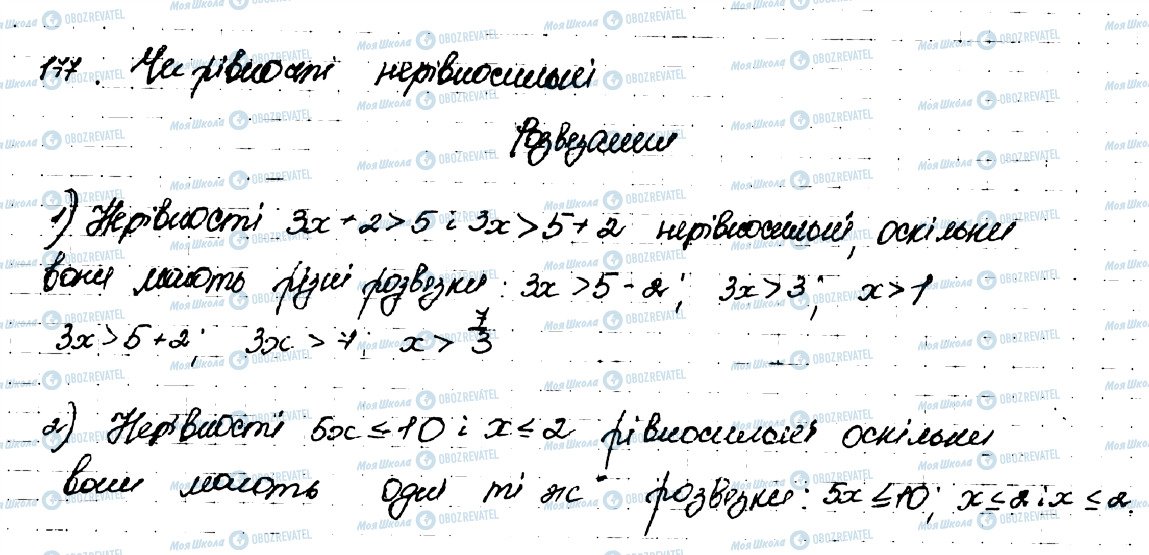 177. Чи рівності нерівносильні
Розвезання
1) Нерівності 3x + 2 > 5 і 3x > 5 + 2 нерівносильні, оскільки
вони мають різні розвезки: 3x > 5 - 2; 3x > 3; x > 1
3x > 5 + 2; 3x > 7; x > 7/3
2) Нерівності 5x ≤ 10 і x ≤ 2 рівносильні оскільки
вони мають одні ті ж розвезки: 5x ≤ 10; x ≤ 2 і x ≤ 2.